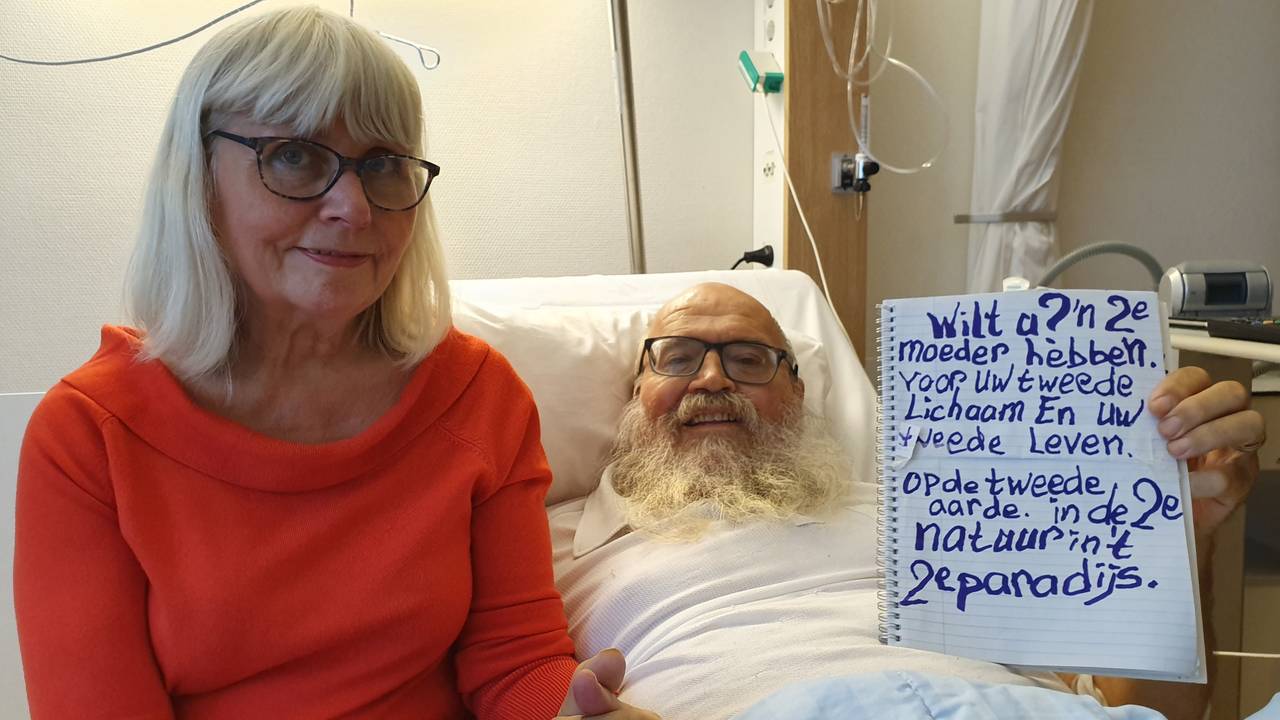 Wilt a?'n 2e
moeder hebben.
voor uw tweede
Lichaam En uw
tweede Leven.
op de tweede
aarde. in de 2e
natuur in 't
2e paradijs.